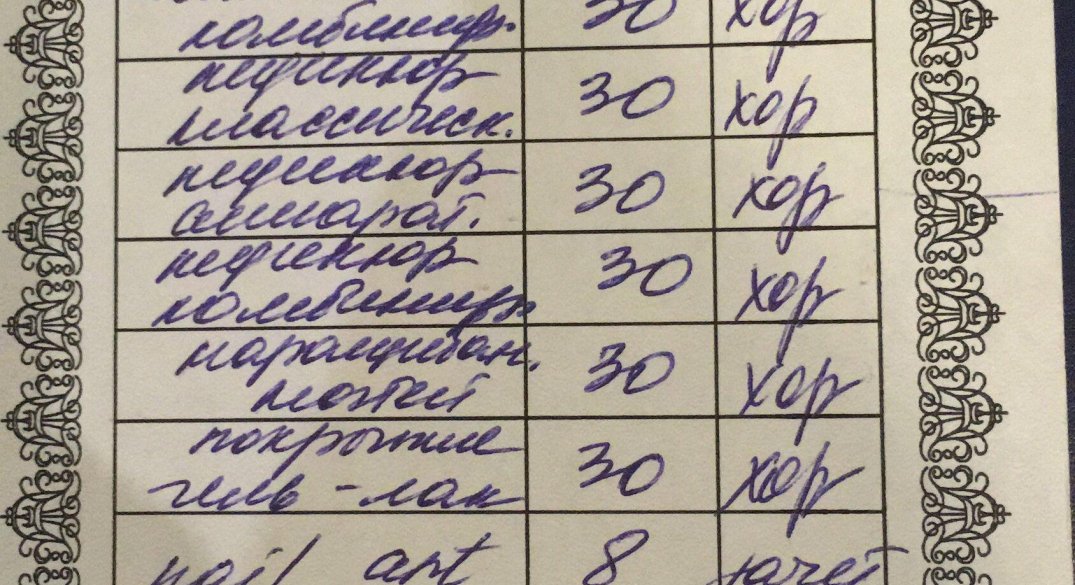 комбинир. 30 хор
педикюр
классическ. 30 хор
педикюр
аппарат. 30 хор
педикюр
комбинир. 30 хор
наращиван.
ногтей 30 хор
покрытие
гель-лак 30 хор
nail art 8 зачет